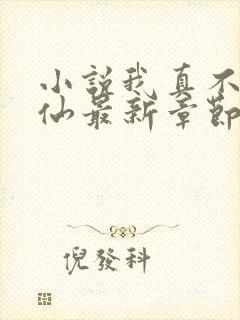 小說我真不
仙最新章節
倪發科